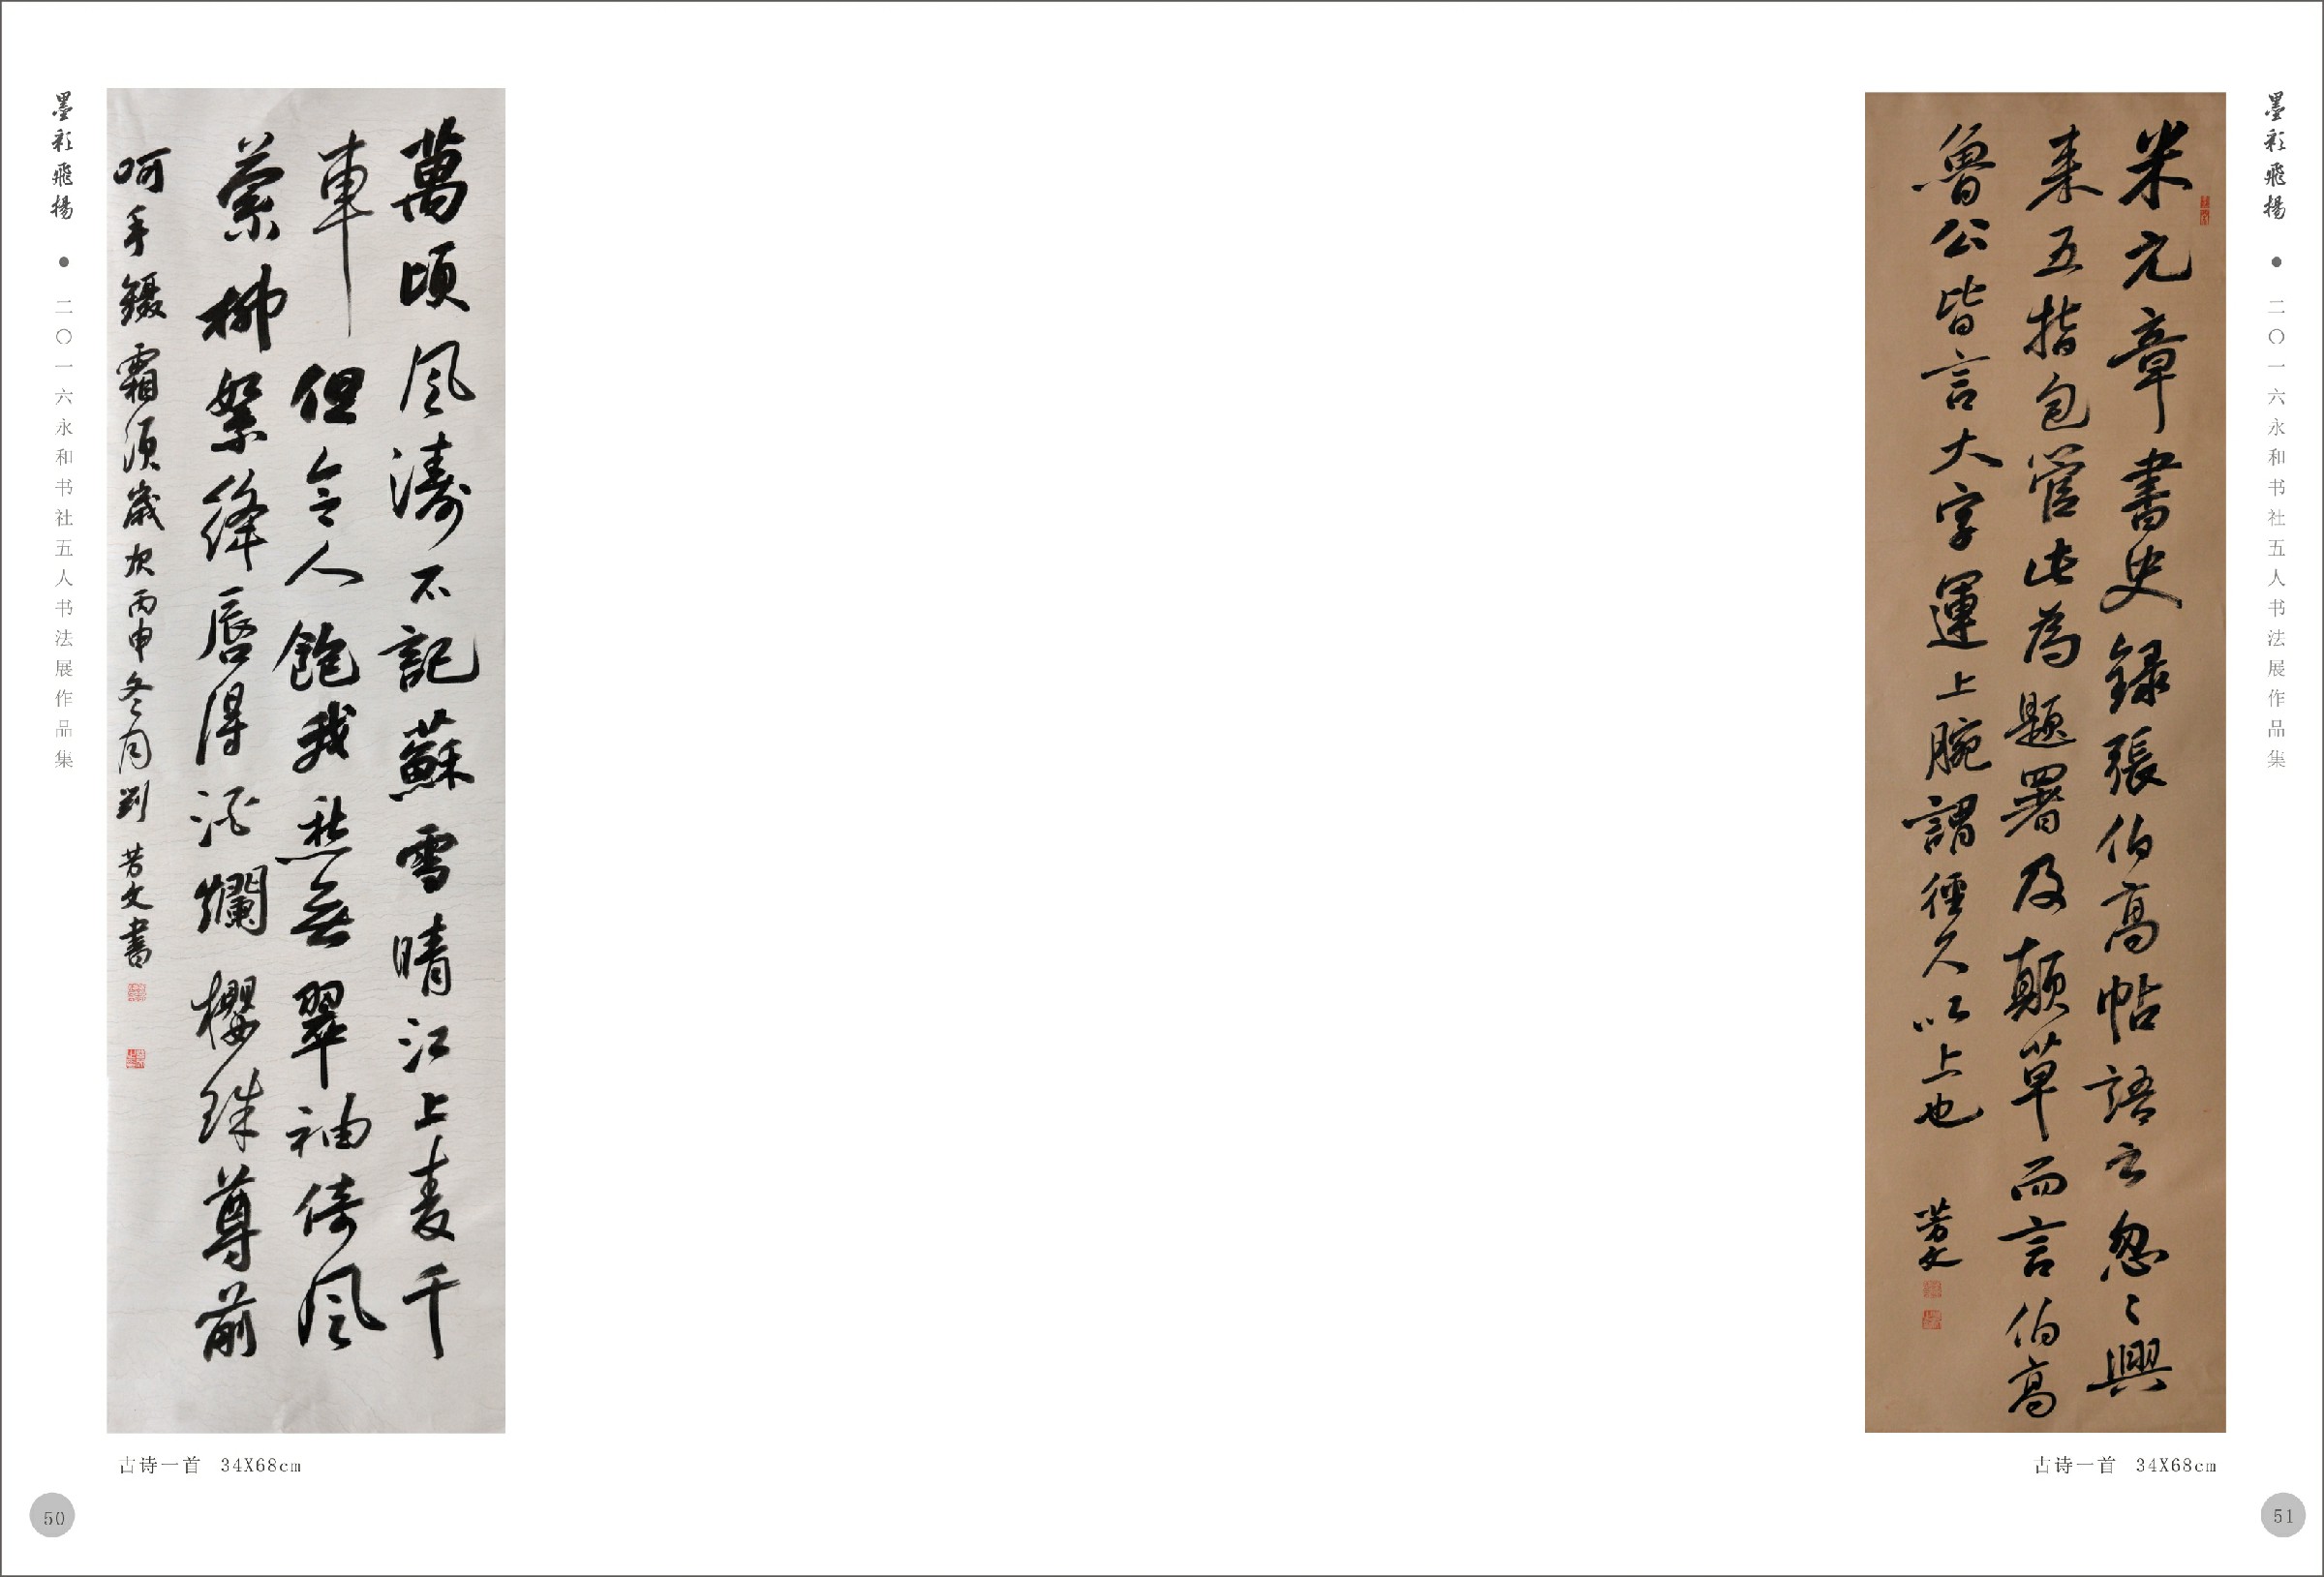 墨彩飛揚 ● 二〇一六永和书社五人书法展作品集
萬頃風濤不記蘇雪晴江上麦千
車但令人飽我愁無翠袖倚風
縈柳絮絳唇得酒爛櫻珠尊前
呵手鑷霜須歲次丙申冬月劉芳文書
古诗一首 34X68cm
50
米元章書史錄張伯高帖語云忽忽興
来五指包管此為題署及顛草而言伯高
魯公皆言大字運上腕謂徑久以上也
芳文
古诗一首 34X68cm
51
墨彩飛揚 ● 二〇一六永和书社五人书法展作品集